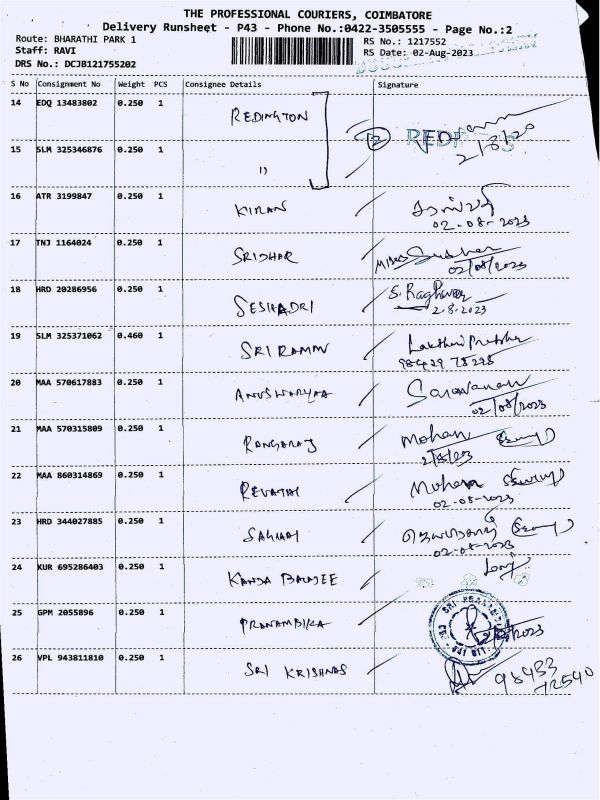 THE PROFESSIONAL COURIERS, COIMBATORE
Delivery Runsheet - P43 - Phone No.:0422-3505555 - Page No.:2
Route: BHARATHI PARK 1 RS No.: 1217552
Staff: RAVI RS Date: 02-Aug-2023
DRS No.: DCJB121755202
S No Consignment No Weight PCS Consignee Details Signature
14 EDQ 13483802 0.250 1 REDINGTON
2 RED
2/8/20
15 SLM 325346876 0.250 1 ''
16 ATR 3199847 0.250 1 KIRAN
02-08-2023
17 TNJ 1164024 0.250 1 SRIDHAR
02/08/2023
18 HRD 20286956 0.250 1 SESHADRI S. Raghavan
2-8-2023
19 SLM 325371062 0.460 1 SRI RAMAN Lakshmi Prabha
98429 78298
20 MAA 570617883 0.250 1 Saravanan
02/08/2023
21 MAA 570315809 0.250 1 RANGARAJ Mohan
22 MAA 860314869 0.250 1 REVATHI Mohan
02-08-2023
23 HRD 344027885 0.250 1
02-08-2023
24 KUR 695286403 0.250 1 KANDA BALAJEE
25 GPM 2055896 0.250 1 PRANAMBIKA
26 VPL 943811810 0.250 1 SRI KRISHNAS 98433
72590